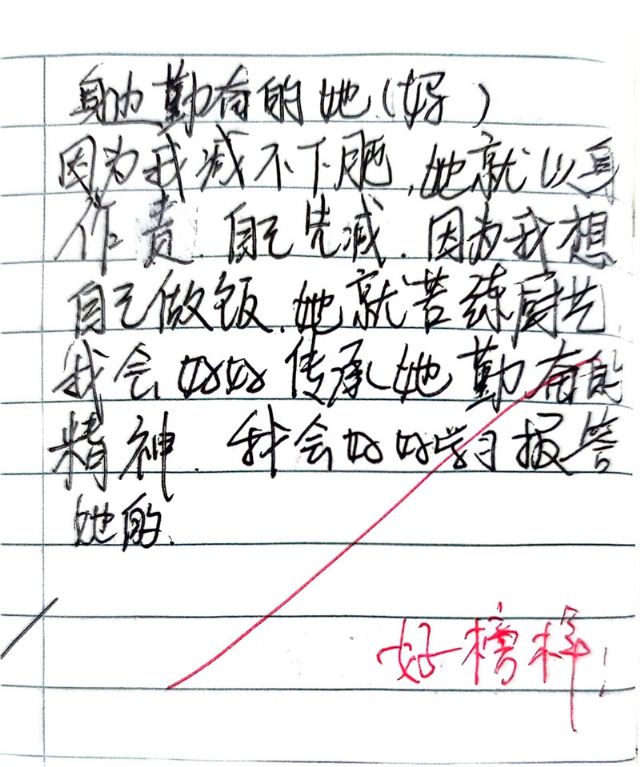 身边勤奋的她(妈)
因为我减不下肥,她就以身
作责.自己先减.因为我想
自己做饭.她就苦练厨艺.
我会好好传承她勤奋的
精神.我会好好学习报答
她的.
好榜样!